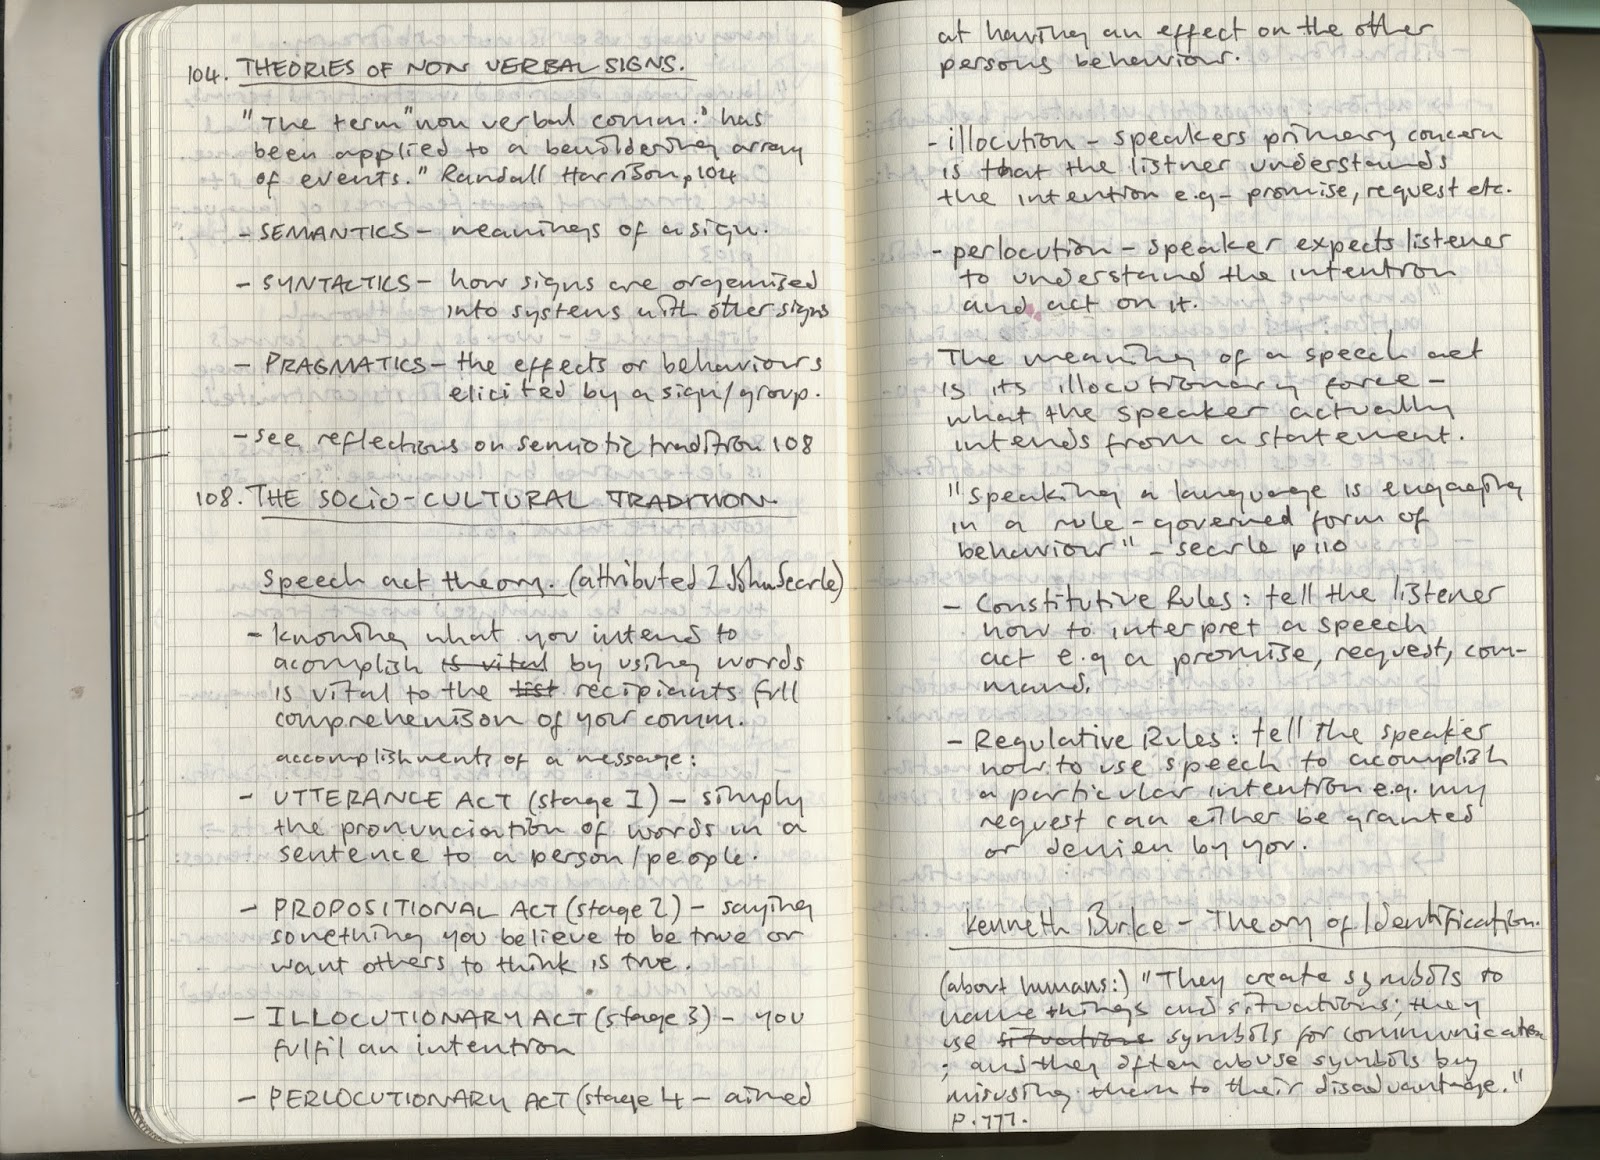 104. THEORIES OF NON VERBAL SIGNS.
"The term "non verbal comm." has
been applied to a bewildering array
of events." Randall Harrison p104
- SEMANTICS - meanings of a sign.
- SYNTACTICS - how signs are organised
into systems with other signs
- PRAGMATICS - the effects or behaviours
elicited by a sign/group.
- see reflections on semiotic tradition 108
108. THE SOCIO-CULTURAL TRADITION.
Speech act theory. (attributed 2 John Searle)
- Knowing what you intend to
acomplish is vital by using words
is vital to the list recipiants full
comprehenison of your comm.
accomplishments of a message:
- UTTERANCE ACT (stage 1) - simply
the pronunciation of words in a
sentence to a person/people.
- PROPOSITIONAL ACT (stage 2) - saying
something you believe to be true or
want others to think is true.
- ILLOCUTIONARY ACT (stage 3) - you
fulfil an intention
- PERLOCUTIONARY ACT (stage 4 - aimed
at having an effect on the other
persons behaviour.
- illocution - speakers primary concern
is that the listner understands
the intention e.g - promise, request etc.
- perlocution - speaker expects listener
to understand the intention
and act on it.
The meaning of a speech act
is its illocutionary force -
what the speaker actually
intends from a statement.
"Speaking a language is engaging
in a rule-governed form of
behaviour" - searle p110
- Constitutive Rules: tell the listener
how to interpret a speech
act e.g a promise, request, com-
mand.
- Regulative Rules: tell the speaker
how to use speech to acomplish
a particular intention e.g. my
request can either be granted
or denien by you.
Kenneth Burke - Theory of Identification.
(about humans:) "They create symbols to
name things and situations; they
use situations symbols for communication
; and they often abuse symbols by
misusing them to their disadvantage."
P.777.